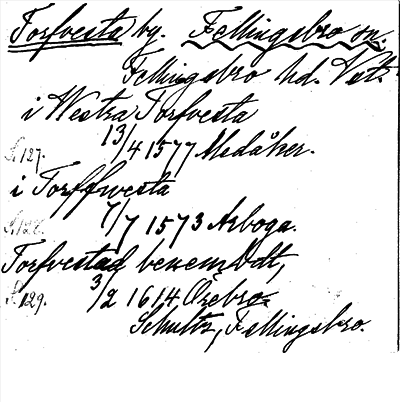 Torfvesta by. Fellingsbro sn.
Fellingsbro hd. Vstm.
i Westra Torfvesta
S.127. 13/4 1577 Medåker.
i Torffwesta
S.128. 7/7 1573 Arboga.
Torfvestad benemdt,
S.129. 3/2 1614 Örebro.
Schultz, Fellingsbro.